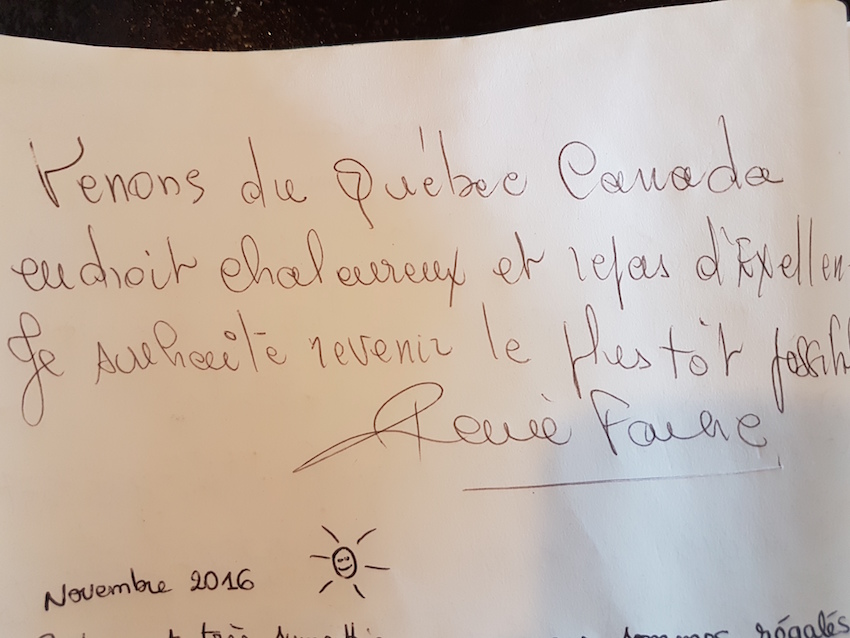 Venons du Québec Canada
endroit chaleureux et repas d'Exellen
Je souhaite revenir le plus tôt possib
Novembre 2016
très régalés